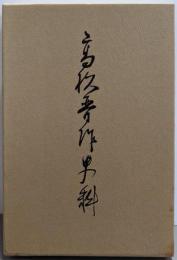 高杉晋作史料